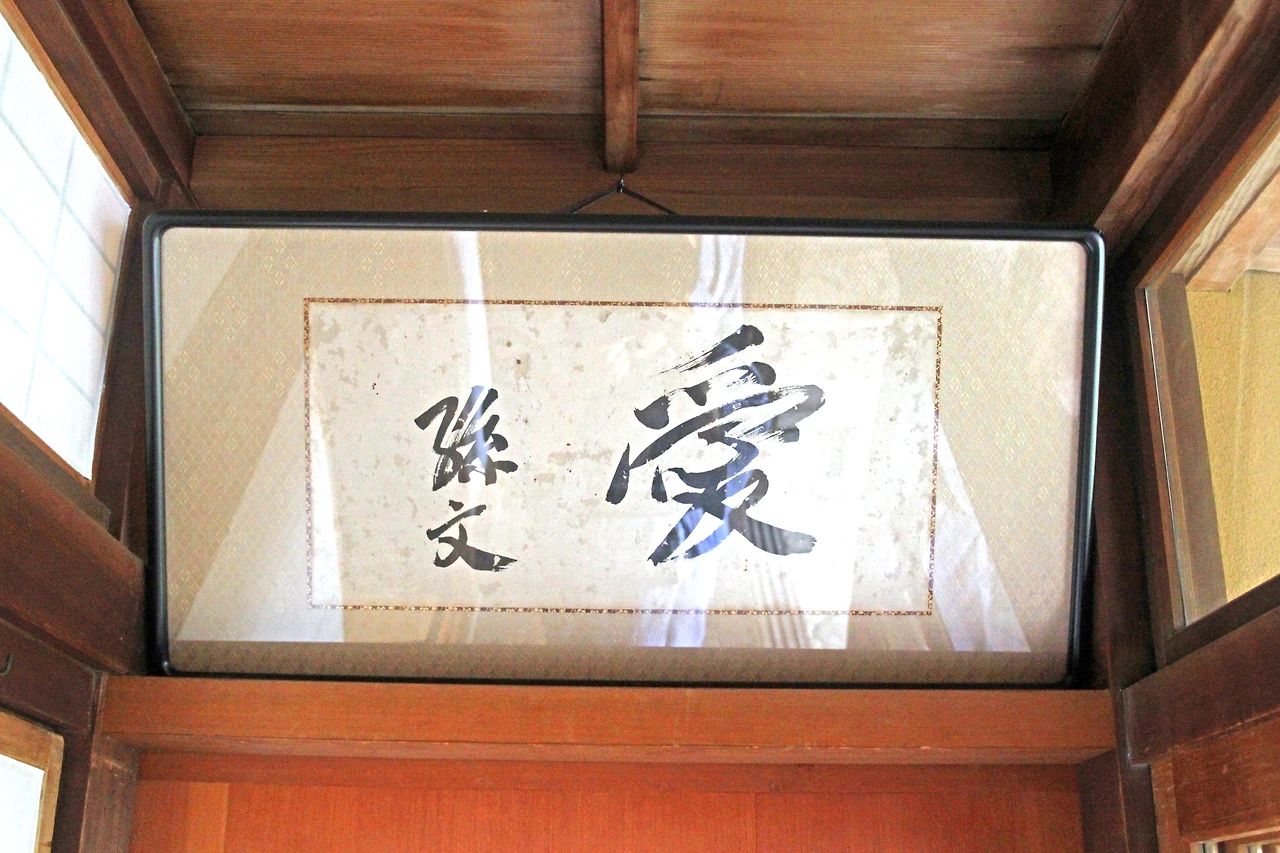 愛
孫文